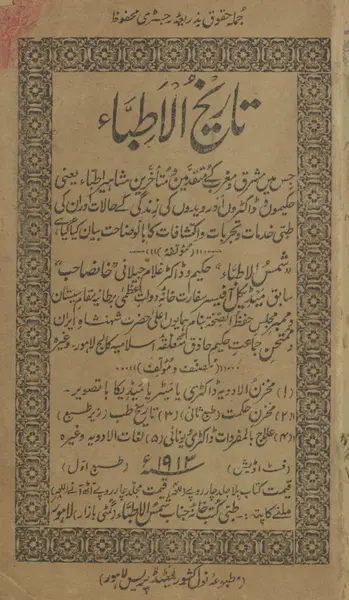 جملہ حقوق بذریعہ رجسٹری محفوظ
تاریخ الاطباء
جس میں مشرق و مغرب کے متقدمین و متأخرین مشاہیر اطباء یعنی
حکیموں و ڈاکٹروں اور ویدوں کی زندگی کے حالات اور ان کی
طبی خدمات و تجربات و اکتشافات کا با وضاحت بیان کیا گیا ہے
مؤلفہ
شمس الاطباء حکیم و ڈاکٹر غلام جیلانی خانصاحب
سابق میڈیکل آفیسر سفارت خانہ دولت عظمیٰ برطانیہ مقام سیستان
و ممبر مجلس حفظ الصحۃ بنام ہمایوں اعلیٰ حضرت شہنشاہ ایران
و ممتحن جماعت حکیم حاذق متعلقہ اسلامیہ کالج لاہور۔ وغیرہ
مصنف و مؤلف
(۱) مخزن الادویہ ڈاکٹری یا میٹیریا میڈیکا با تصویر۔
(۲) مخزن حکمت (طبع ثانی) (۳) تاریخ طب (زیر طبع)
(۴) علاج بالمفردات ڈاکٹری یونانی (۵) لغات الادویہ وغیرہ
(فسٹ اڈیشن) ۱۹۱۳ء (طبع اول)
قیمت کتاب بلا جلد چار روپے قیمت مجلد چار روپے آٹھ آنے
ملنے کا پتہ:۔ طبی کتب خانہ جناب شمس الاطباء بازار، لاہور
(مطبوعہ نولکشور پریس لاہور)